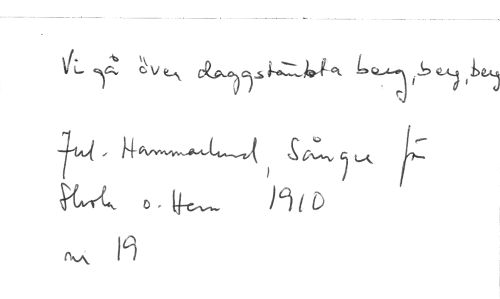 Vi gå över daggstänkta berg, berg, berg
Jul. Hammarlund, Sånger för
Skola o. Hem 1910
nr 19